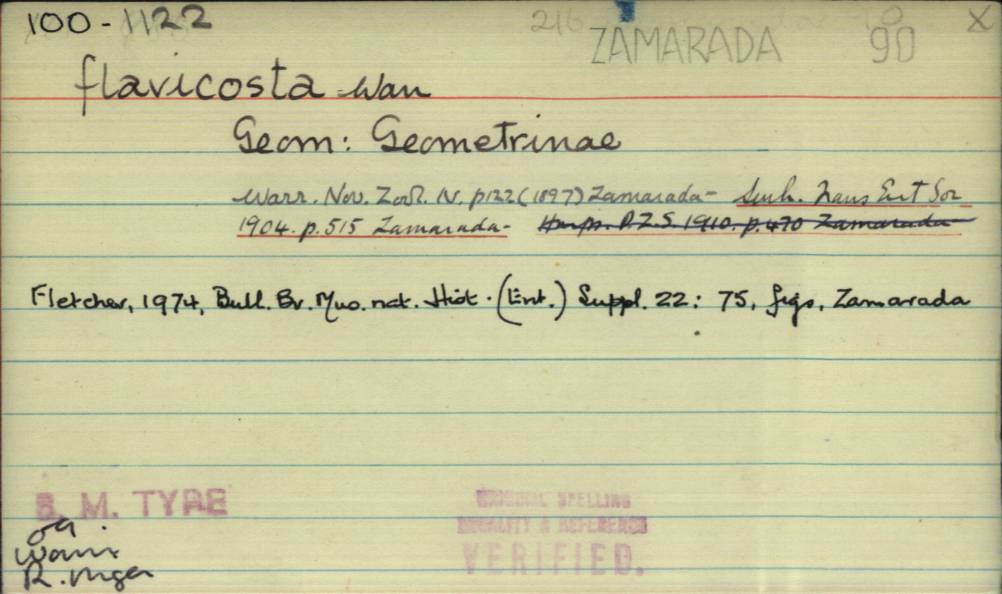 100-1122 216 ZAMARADA 90 X
flavicosta Warr
Geom: Geometrinae
Warr. Nov. Zool. IV. p122 (1897) Zamarada- Swinh. Trans Ent Soc
1904. p.515 Zamarada- Hmps. P.Z.S. 1910. p.470 Zamarada
Fletcher, 1974, Bull. Br. Mus. nat. Hist. (Ent.) Suppl. 22: 75, figs, Zamarada
B. M. TYPE
ORIGINAL SPELLING
LOCALITY & REFERENCE
VERIFIED.
Warri
R. Niger